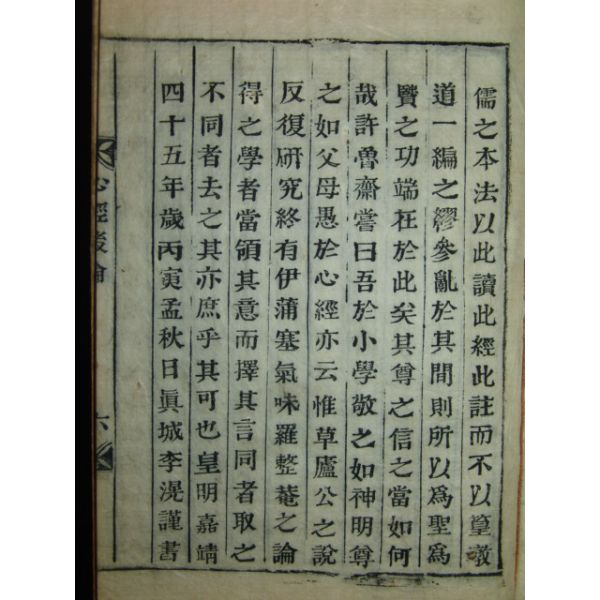 儒之本法以此讀此經此註而不以篁墩
道一編之繆參亂於其間則所以爲聖爲
賢之功端在於此矣其尊之信之當如何
哉許魯齋嘗曰吾於小學敬之如神明尊
之如父母愚於心經亦云惟草廬公之說
反復研究終有伊蒲塞氣味羅整菴之論
得之學者當領其意而擇其言同者取之
不同者去之其亦庶乎其可也皇明嘉靖
四十五年歲丙寅孟秋日眞城李滉謹書
心經後論
六